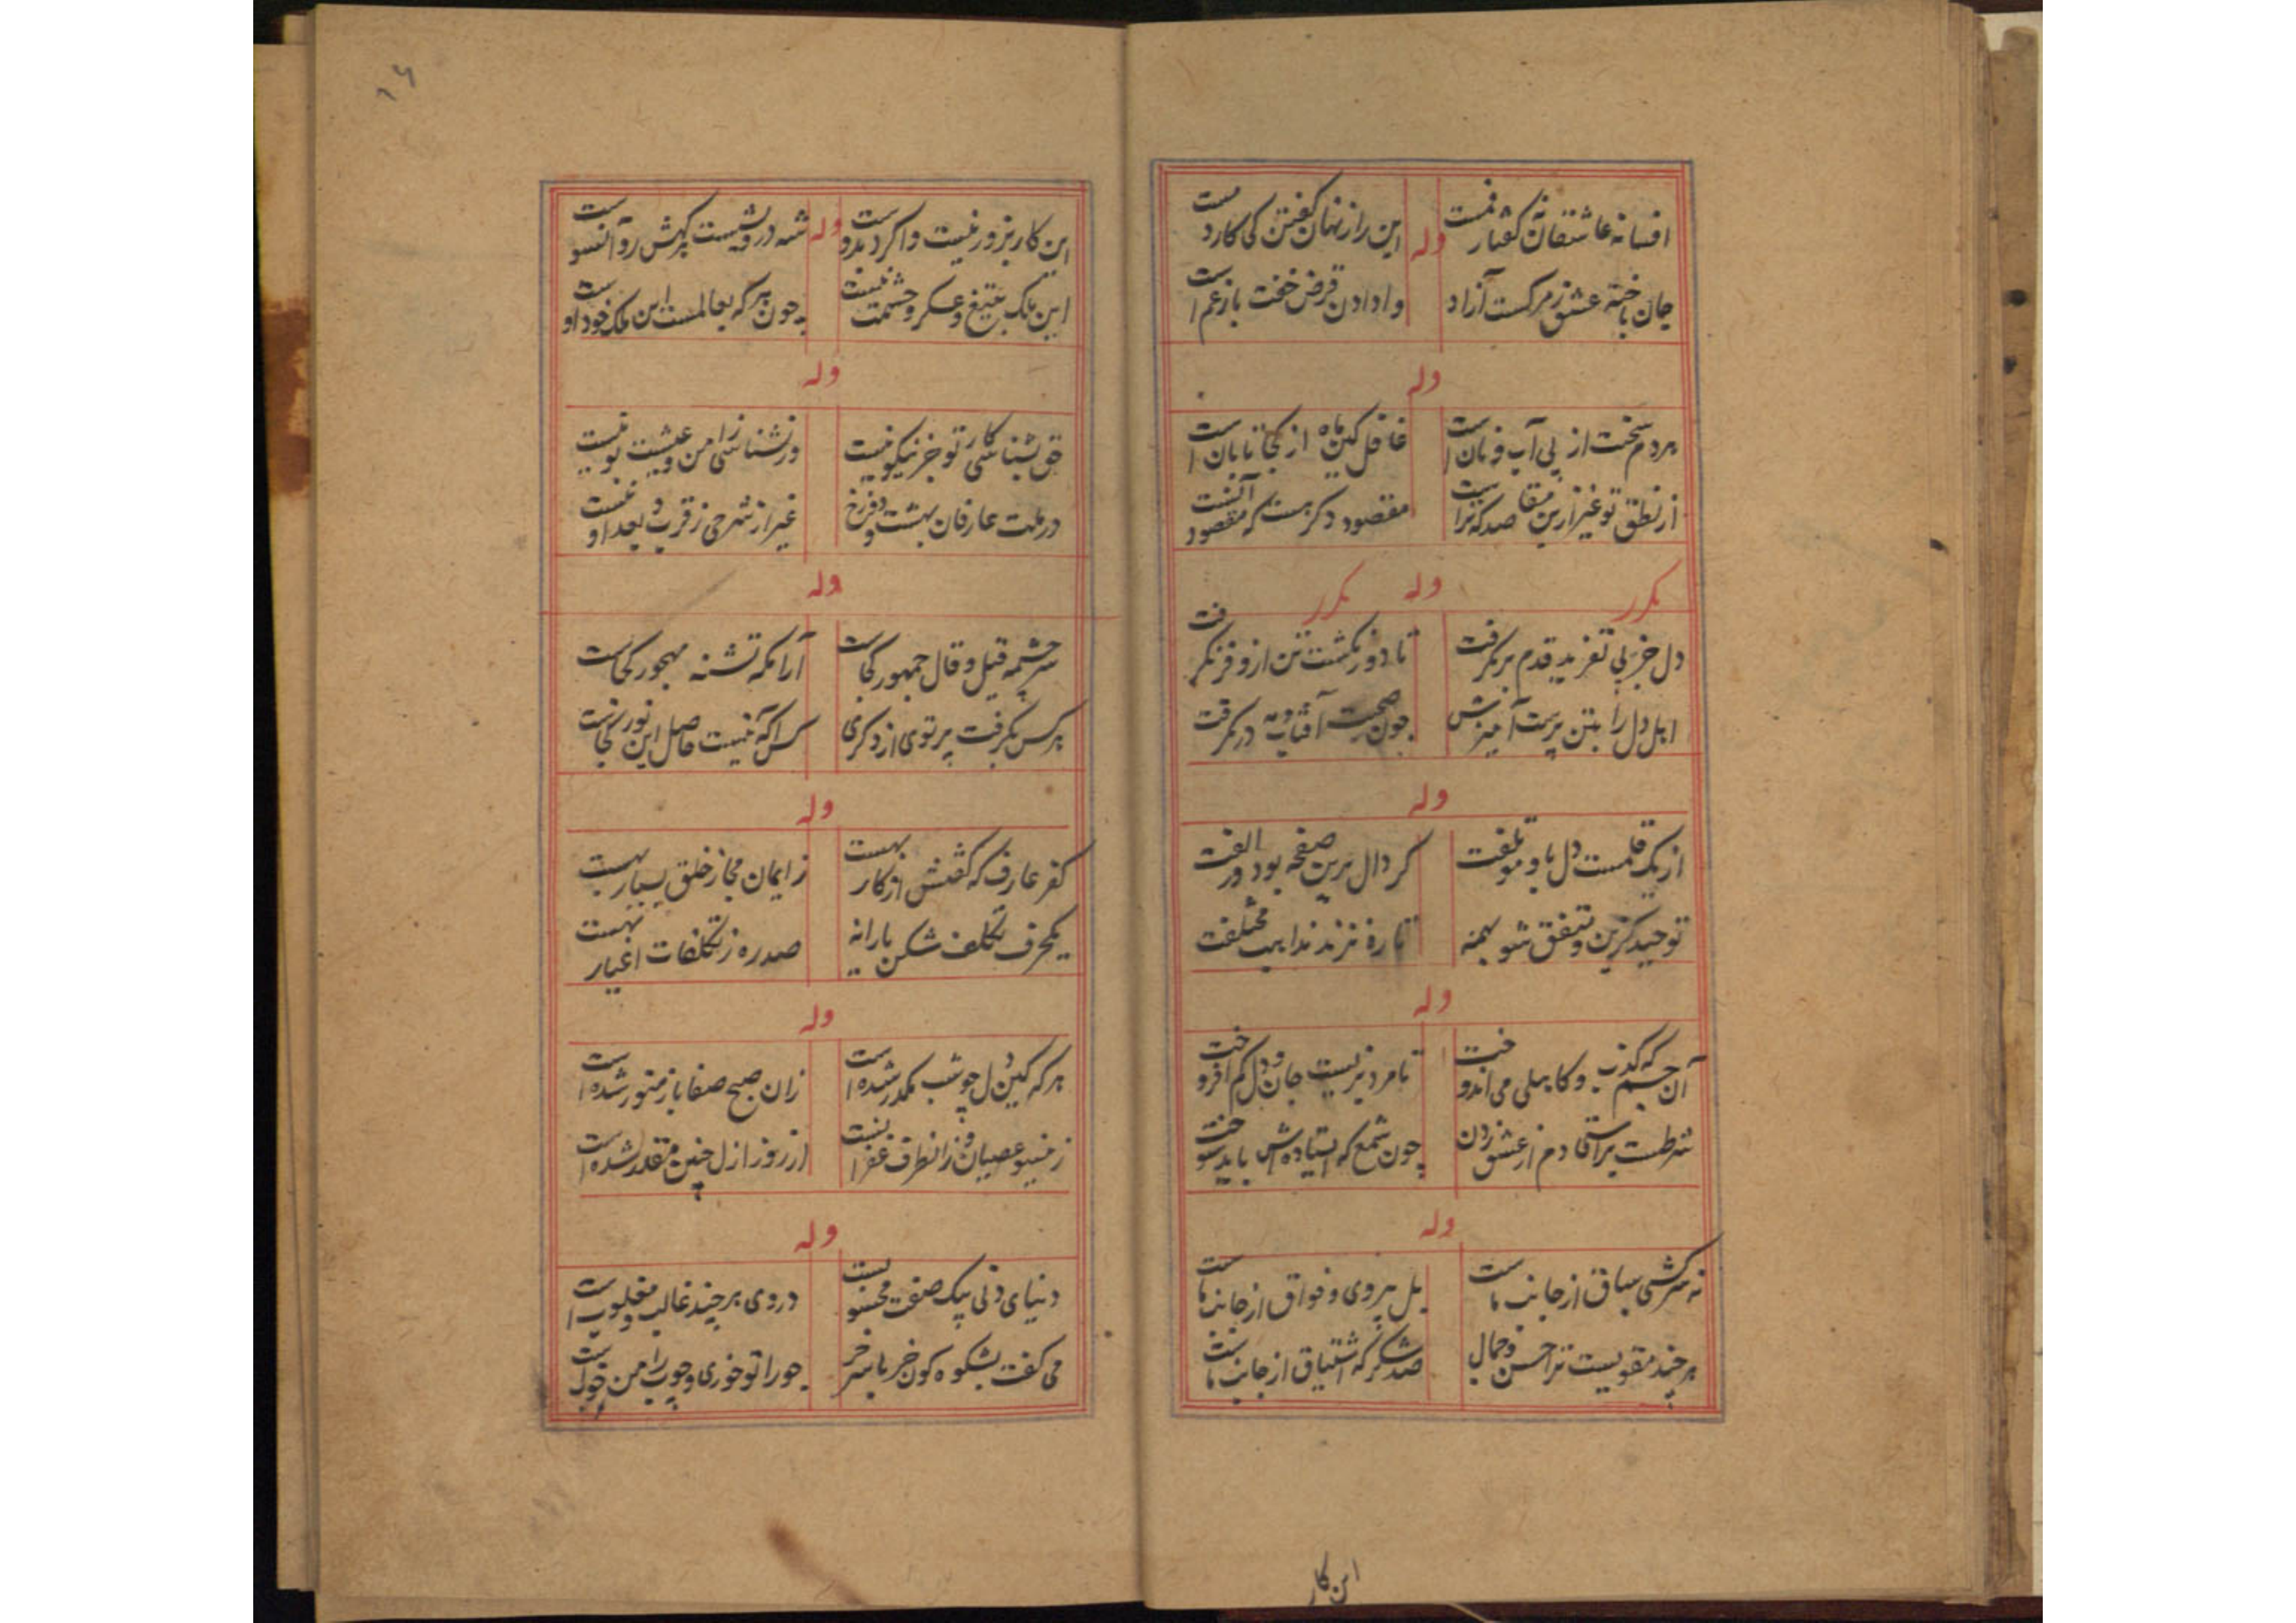 افسانه عاشقان گفتار فمست
این راز نهان گفتن کی کارد مست
وله
جان باخته عشق ز مرگست آزاد
وا دادن قرض خفت بازعم است
وله
هر دم سخنت از پی آب و نان است
غافل کین ماه از کجا تابان است
از نطق تو غیر ازین مقاصد که تراست
مقصود دگر هست که مقصود آنست
مکرر وله مکرر
دل جز پی تغرید قدم بر نگرفت
تا دور نگشت تن ازو فر نگرفت
اهل دل را بتن پرست آمیزش
چون صحبت آفتاب و مه در نگرفت
وله
از یک قلمست دل با و مؤتلفت
گر دال برین صفحه بود ور الفت
توحید گزین و متفق شو بهمه
تا ره نزند مذاهب مختلفت
وله
آن جسم که کذب و کاهلی می اندوخت
تا مرد نزیست جان و دل کم افروخت
شرطست براستی دم از عشق زدن
چون شمع که استاده‌اش باید سوخت
وله
نه سرکشی سیاق از جانب ماست
بل پیروی و فواق از جانب ماست
هر چند مقویست ترا حسن و جمال
صد شکر که اشتیاق از جانب ماست
این کار
این کار بزور نیست وا کرد بدوست
شه در و نشست پرکهش رو آنسوست
وله
این ملک بتیغ و عسکر و حشمت نیست
چون هر که بعالمست این ملک خود اوست
وله
حق بشناسی کار تو جز نیکو نیست
ور نشناسی زامن و عیشت بو نیست
در ملت عارفان بهشت و دوزخ
غیر از شرحی ز قرب و بعد او نیست
وله
سرچشمه قیل و قال جمهور کجاست
آرامگه تشنه مهجور کجاست
هر کس بگرفت پرتوی از دگری
کس آگه نیست کاصل این نور کجاست
وله
کفر عارف که گفتنش از کار بهست
ز ایمان مجاز خلق بسیار بهست
یکحرف تکلف شکن یارانه
صدره ز تکلفات اغیار بهست
وله
هر که کین دل چو شب مکدر شده است
زان صبح صفا باز منور شده است
زینسو عصیان و زانطرف غفرانست
از روز ازل چنین مقدر شده است
وله
دنیای دنی پیک صفت محسوبست
در وی هر چند غالب و مغلوب است
می گفت بشکوه کون خر با سر خر
جو را تو خوری و چوب را من چوبست